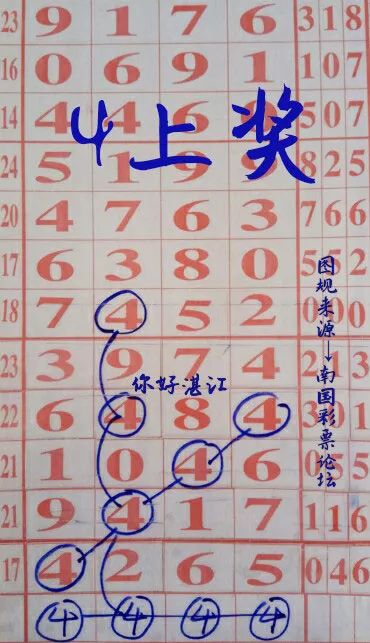 23 9 1 7 6 318
16 0 6 9 1 107
14 4 4 6 507
4上奖
24 5 1 9 9 825
20 4 7 6 3 766
17 6 3 8 0 552
18 7 4 5 2 000
23 3 9 7 4 213
你好湛江
22 6 4 8 4 301
21 1 0 4 6 055
21 9 4 1 7 116
17 4 2 6 5 046
4 4 4 4
图规来源→南国彩票论坛